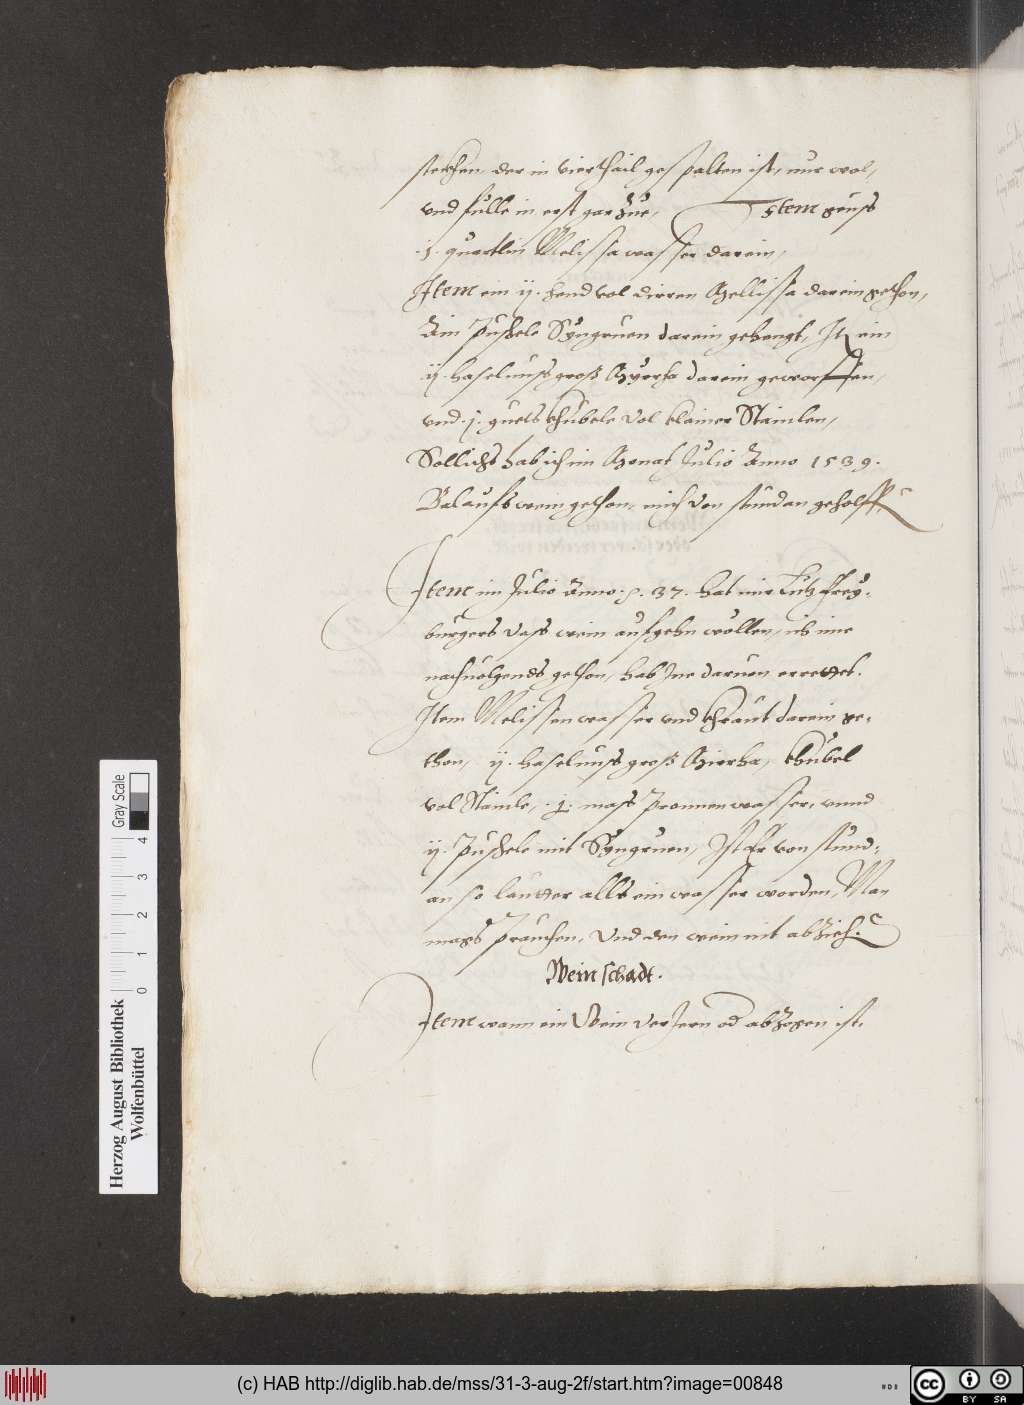 stechen, der in vierthail gespalten ist, nur wol,
vnd fulle in erst gar zue, Item geuss
.j. quertlin Melissa wasser darein,
Item ein ij. hend vol dirren Mellissa darein gethon,
Ain puschele Syngruen darein gehengt, It ein
ij. haselnuss groß Myrrha darein geworffen,
vnd .j. guets khubele vol klainer Stainlen,
Sollichs hab ich im Monat Julio Anno 1539.
wein gethon, mich von stundan geholffen
Item im Julio Anno .37. hat mir Lutz Frey-
burgers vass wein aufgehn wöllen, ich ime
nachuolgends gethon, hab Ine daruon errettet.
Item Melissen wasser vnd khraut darein ge-
thon, ij. haselnuss groß Mirrha, khubel
vol Stainle, .j. mass pronnenwasser, vnnd
ij. puschele mit Syngruen, Ist Er von stund-
an so lautter alls ein wasser worden, Man
mags prauchen, Vnd den wein nit abzieh.
Wein schadt.
Item wann ein Wein verJern od abzogen ist,
Herzog August Bibliothek
Wolfenbüttel
0 1 2 3 4
Gray Scale
(c) HAB http://diglib.hab.de/mss/31-3-aug-2f/start.htm?image=00848
cc BY SA